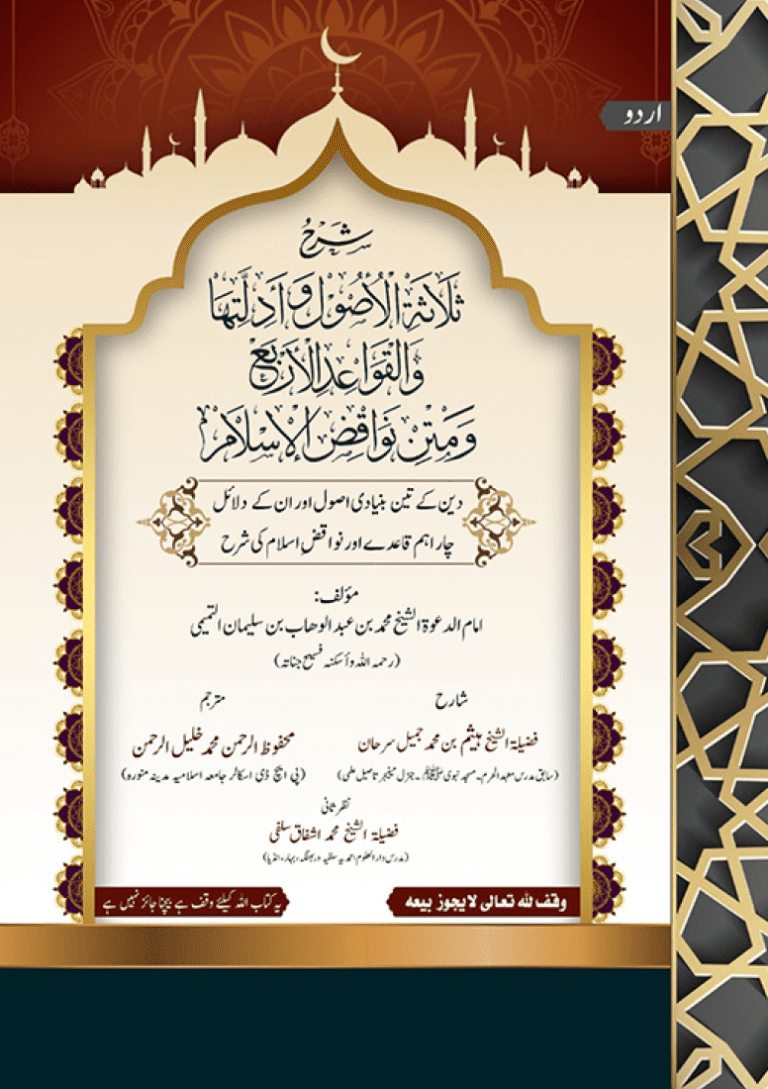 اردو
شَرْحُ
ثَلَاثَةِ الْأُصُوْلِ وَأَدِلَّتِهَا
وَالْقَوَاعِدِ الْأَرْبَعِ
وَمَتْنِ نَوَاقِضِ الْإِسْلَامِ
دین کے تین بنیادی اصول اور ان کے دلائل
چار اہم قاعدے اور نواقضِ اسلام کی شرح
مؤلف:
امام الدعوۃ الشیخ محمد بن عبد الوھاب بن سلیمان التمیمی
(رحمہ اللہ وأسکنہ فسیح جناتہ)
شارح
فضیلۃ الشیخ ہیثم بن محمد جمیل سرحان
(سابق مدرس معہد الحرم۔ مسجد نبوی ﷺ۔ جنرل مینیجر تاصیل علمی)
مترجم
محفوظ الرحمن محمد خلیل الرحمن
(پی ایچ ڈی اسکالر جامعہ اسلامیہ مدینہ منورہ)
نظر ثانی
فضیلۃ الشیخ محمد اشفاق سلفی
(مدرس دار العلوم احمدیہ سلفیہ دربھنگہ، بہار، انڈیا)
وقف لله تعالى لايجوز بيعه
یہ کتاب اللہ کیلئے وقف ہے بیچنا جائز نہیں ہے